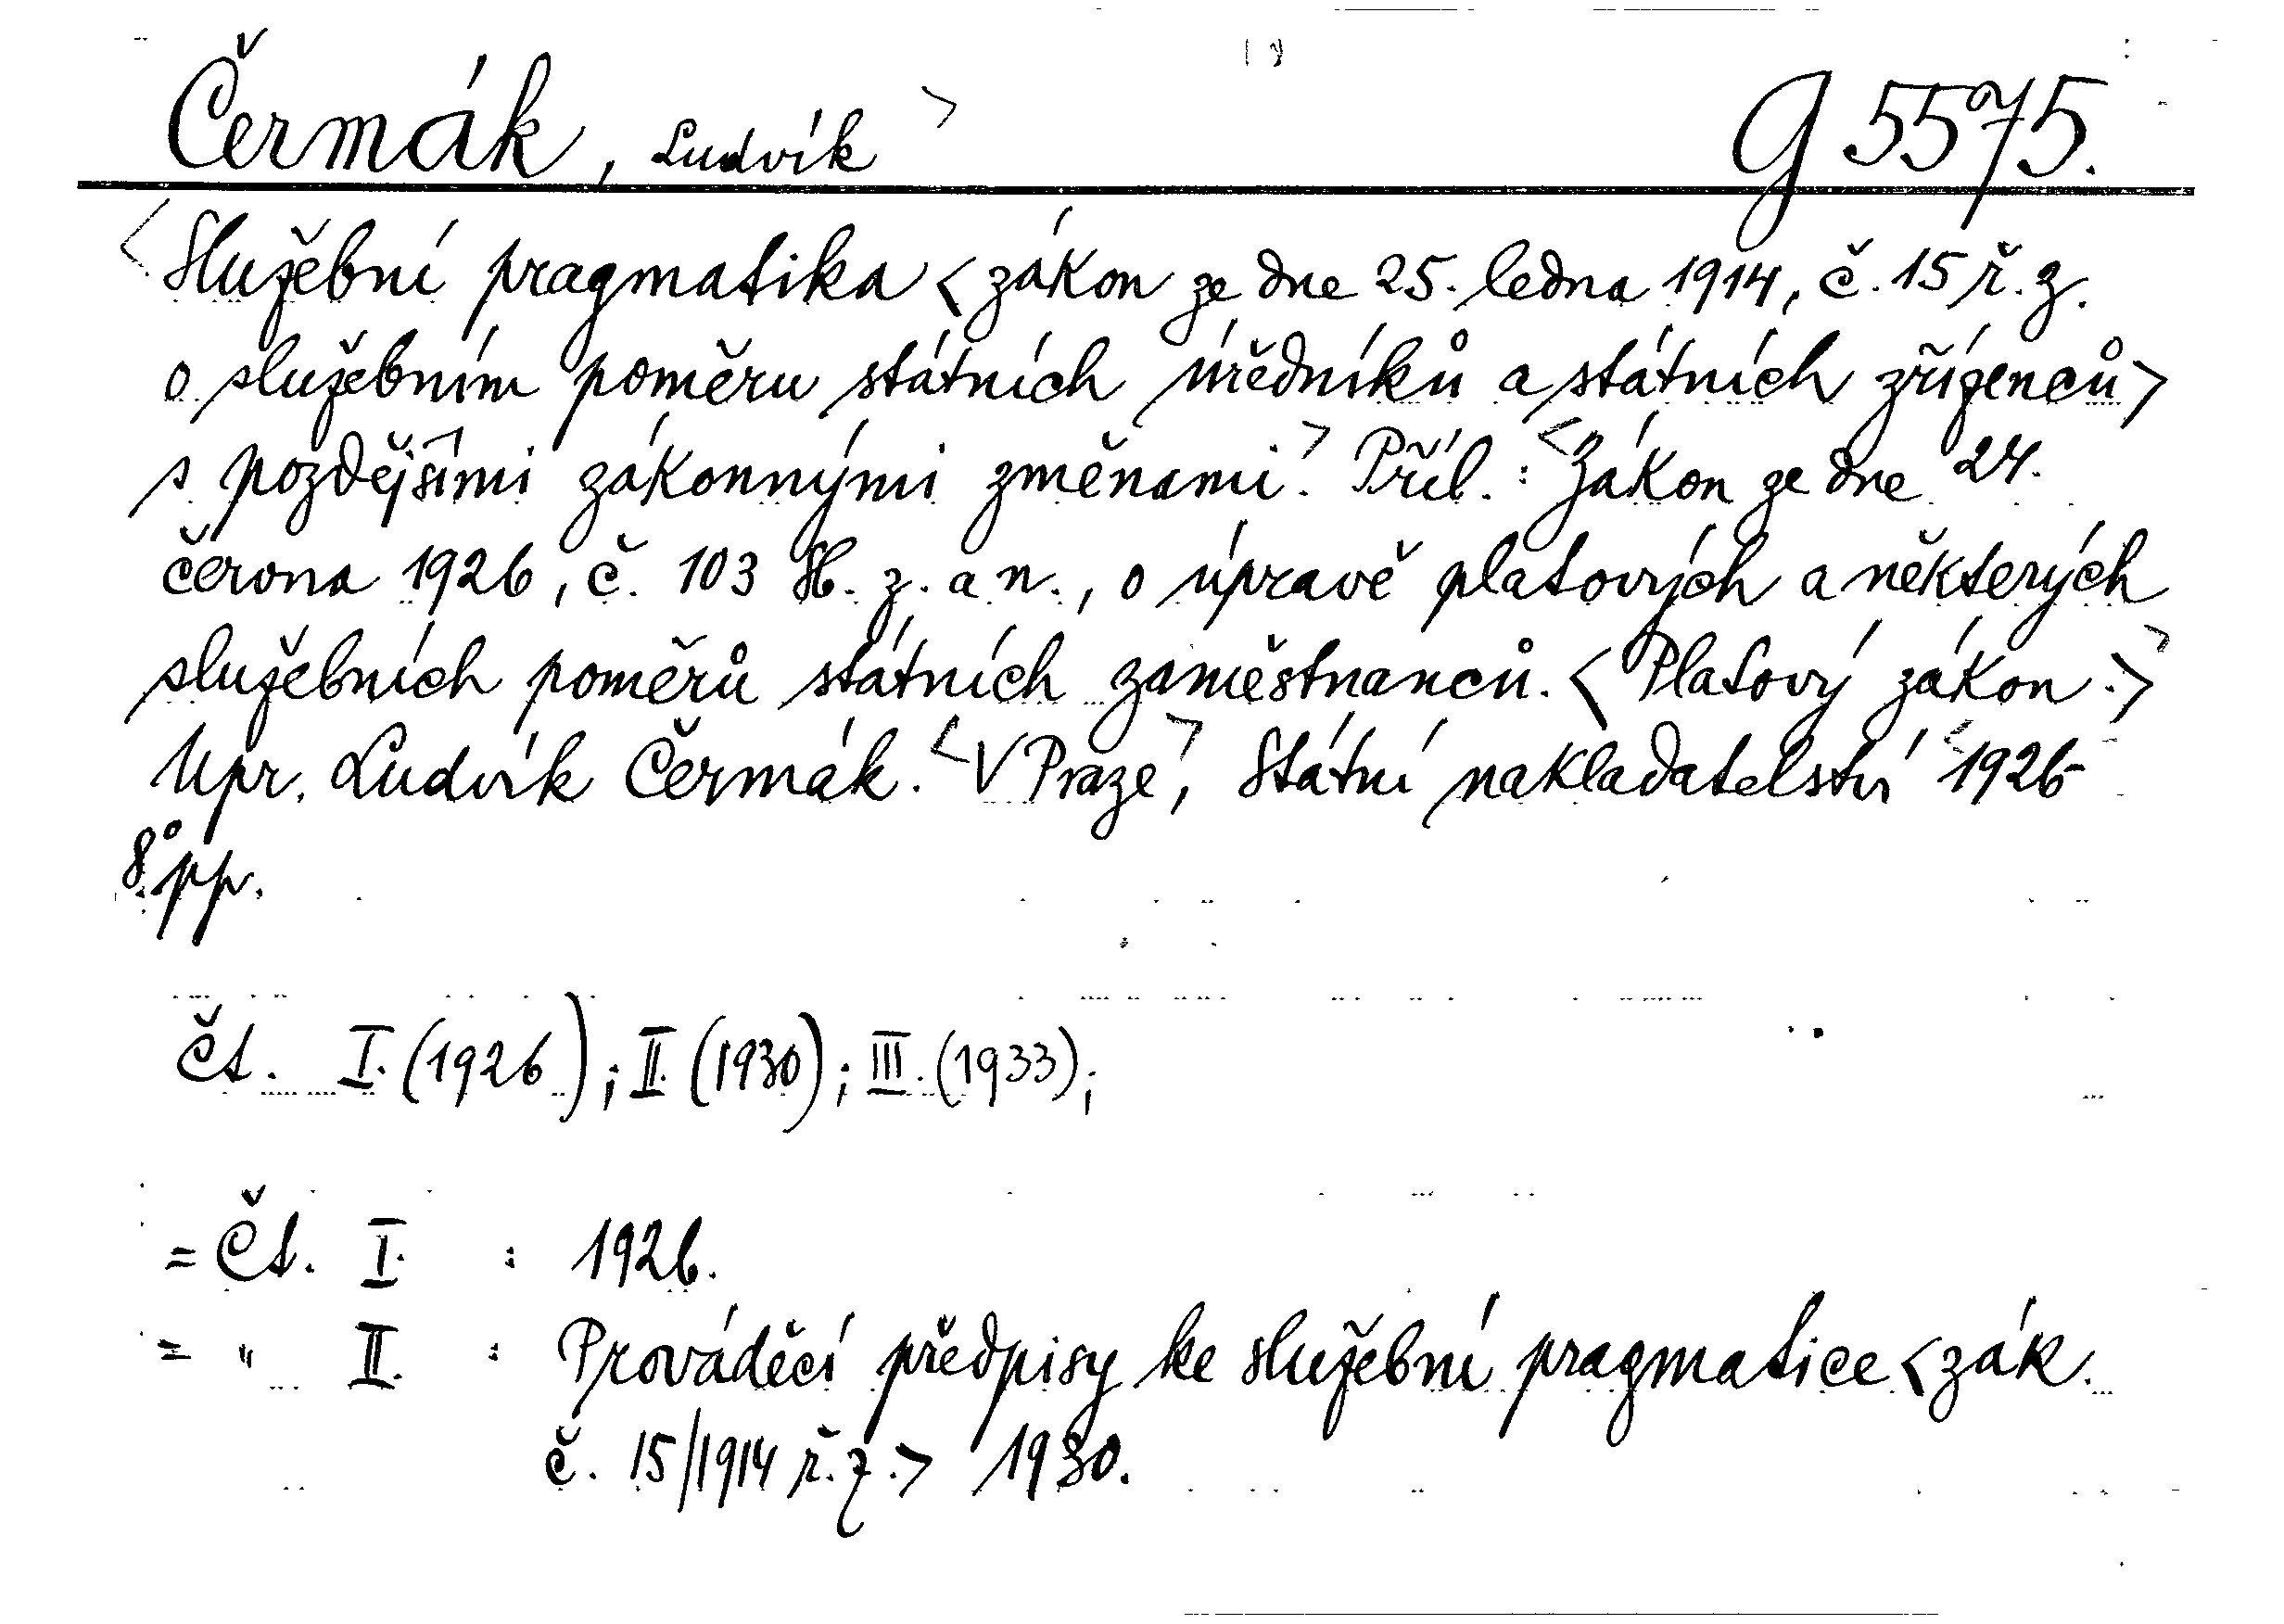 Čermák, Ludvík > G 5575.
<Služební pragmatika <zákon ze dne 25. ledna 1914, č. 15 ř. z.
o služebním poměru státních úředníků a státních zřízenců>
s pozdějšími zákonnými změnami.> Příl.: <Zákon ze dne 24.
června 1926, č. 103 Sb. z. a n., o úpravě platových a některých
služebních poměrů státních zaměstnanců. <Platový zákon.>>
Upr. Ludvík Čermák. <V Praze>, Státní nakladatelství <1926-
8° pp.
Čt. I. (1926); II. (1930); III. (1933);
= Čt. I. : 1926.
= " II. : Prováděcí předpisy ke služební pragmatice <zák.
č. 15/1914 ř. z.> 1930.